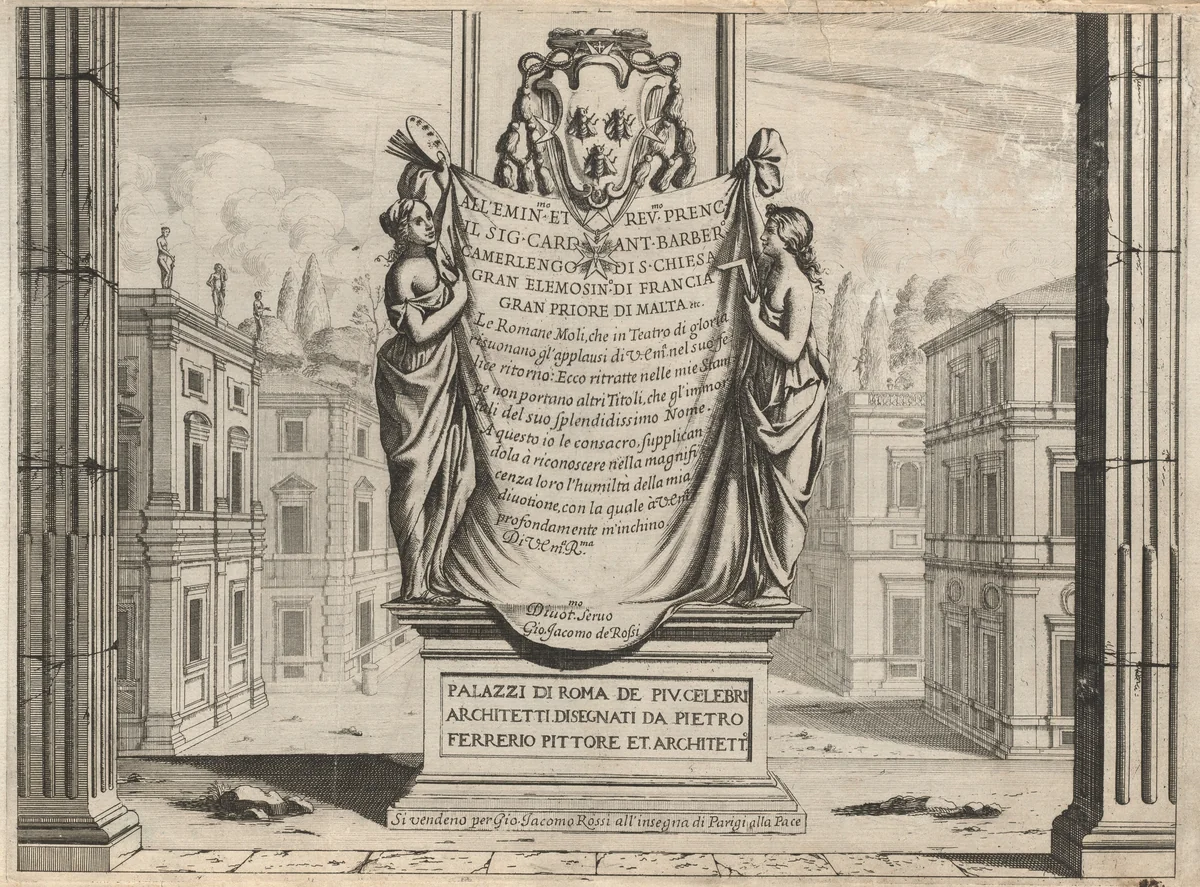 ALL'EMIN.mo ET REV.mo PRENC.
IL SIG. CARD. ANT. BARBER.o
CAMERLENGO DI S. CHIESA
GRAN ELEMOSIN.o DI FRANCIA
GRAN PRIORE DI MALTA etc.
Le Romane Moli, che in Teatro di gloria
risuonano gl'applausi di V. Em.a nel suo fe-
lice ritorno: Ecco ritratte nelle mie Stam
pe non portano altri Titoli, che gl'immor
tali del suo splendidissimo Nome.
A questo io le consacro, supplican
dola à riconoscere nella magnifi
cenza loro l'humiltà della mia
divotione, con la quale à V. Em.a
profondamente m'inchino.
Di V. Em.a R.ma
Divot.mo Servo
Gio. Jacomo de Rossi
PALAZZI DI ROMA DE PIV. CELEBRI
ARCHITETTI. DISEGNATI DA PIETRO
FERRERIO PITTORE ET. ARCHITETT.o
Si vendeno per Gio. Jacomo Rossi all'insegna di Parigi alla Pace